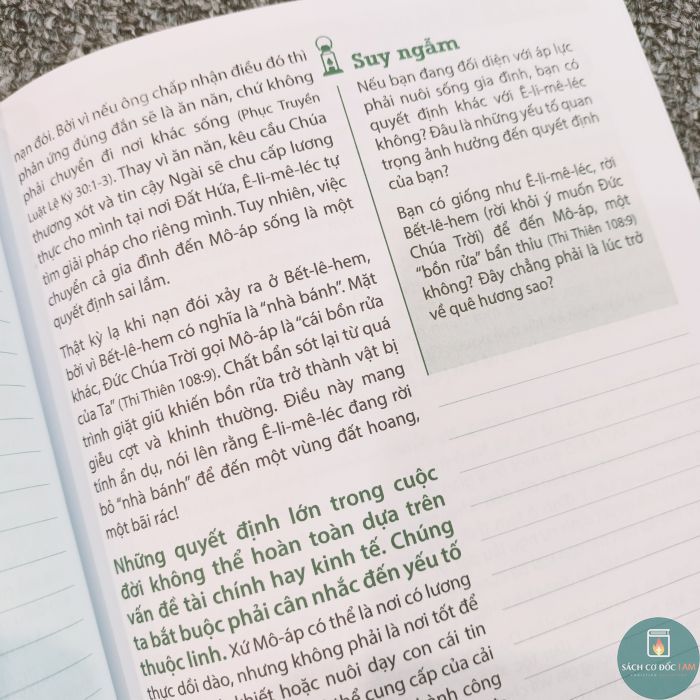 nạn đói. Bởi vì nếu ông chấp nhận điều đó thì
phản ứng đúng đắn sẽ là ăn năn, chứ không
phải chuyển đi nơi khác sống (Phục Truyền
Luật Lệ Ký 30:1-3). Thay vì ăn năn, kêu cầu Chúa
thương xót và tin cậy Ngài sẽ chu cấp lương
thực cho mình tại nơi Đất Hứa, Ê-li-mê-léc tự
tìm giải pháp cho riêng mình. Tuy nhiên, việc
chuyển cả gia đình đến Mô-áp sống là một
quyết định sai lầm.
Thật kỳ lạ khi nạn đói xảy ra ở Bết-lê-hem,
bởi vì Bết-lê-hem có nghĩa là “nhà bánh”. Mặt
khác, Đức Chúa Trời gọi Mô-áp là “cái bồn rửa
của Ta” (Thi Thiên 108:9). Chất bẩn sót lại từ quá
trình giặt giũ khiến bồn rửa trở thành vật bị
giễu cợt và khinh thường. Điều này mang
tính ẩn dụ, nói lên rằng Ê-li-mê-léc đang rời
bỏ “nhà bánh” để đến một vùng đất hoang,
một bãi rác!
Những quyết định lớn trong cuộc
đời không thể hoàn toàn dựa trên
vấn đề tài chính hay kinh tế. Chúng
ta bắt buộc phải cân nhắc đến yếu tố
thuộc linh. Xứ Mô-áp có thể là nơi có lương
thực dồi dào, nhưng không phải là nơi tốt để
khiết hoặc nuôi dạy con cái tin
thể cung cấp của cải
hành công
Suy ngẫm
Nếu bạn đang đối diện với áp lực
phải nuôi sống gia đình, bạn có
quyết định khác với Ê-li-mê-léc
không? Đâu là những yếu tố quan
trọng ảnh hưởng đến quyết định
của bạn?
Bạn có giống như Ê-li-mê-léc, rời
Bết-lê-hem (rời khỏi ý muốn Đức
Chúa Trời) để đến Mô-áp, một
“bồn rửa” bẩn thỉu (Thi Thiên 108:9)
không? Đây chẳng phải là lúc trở
về quê hương sao?
SÁCH CƠ ĐỐC I AM